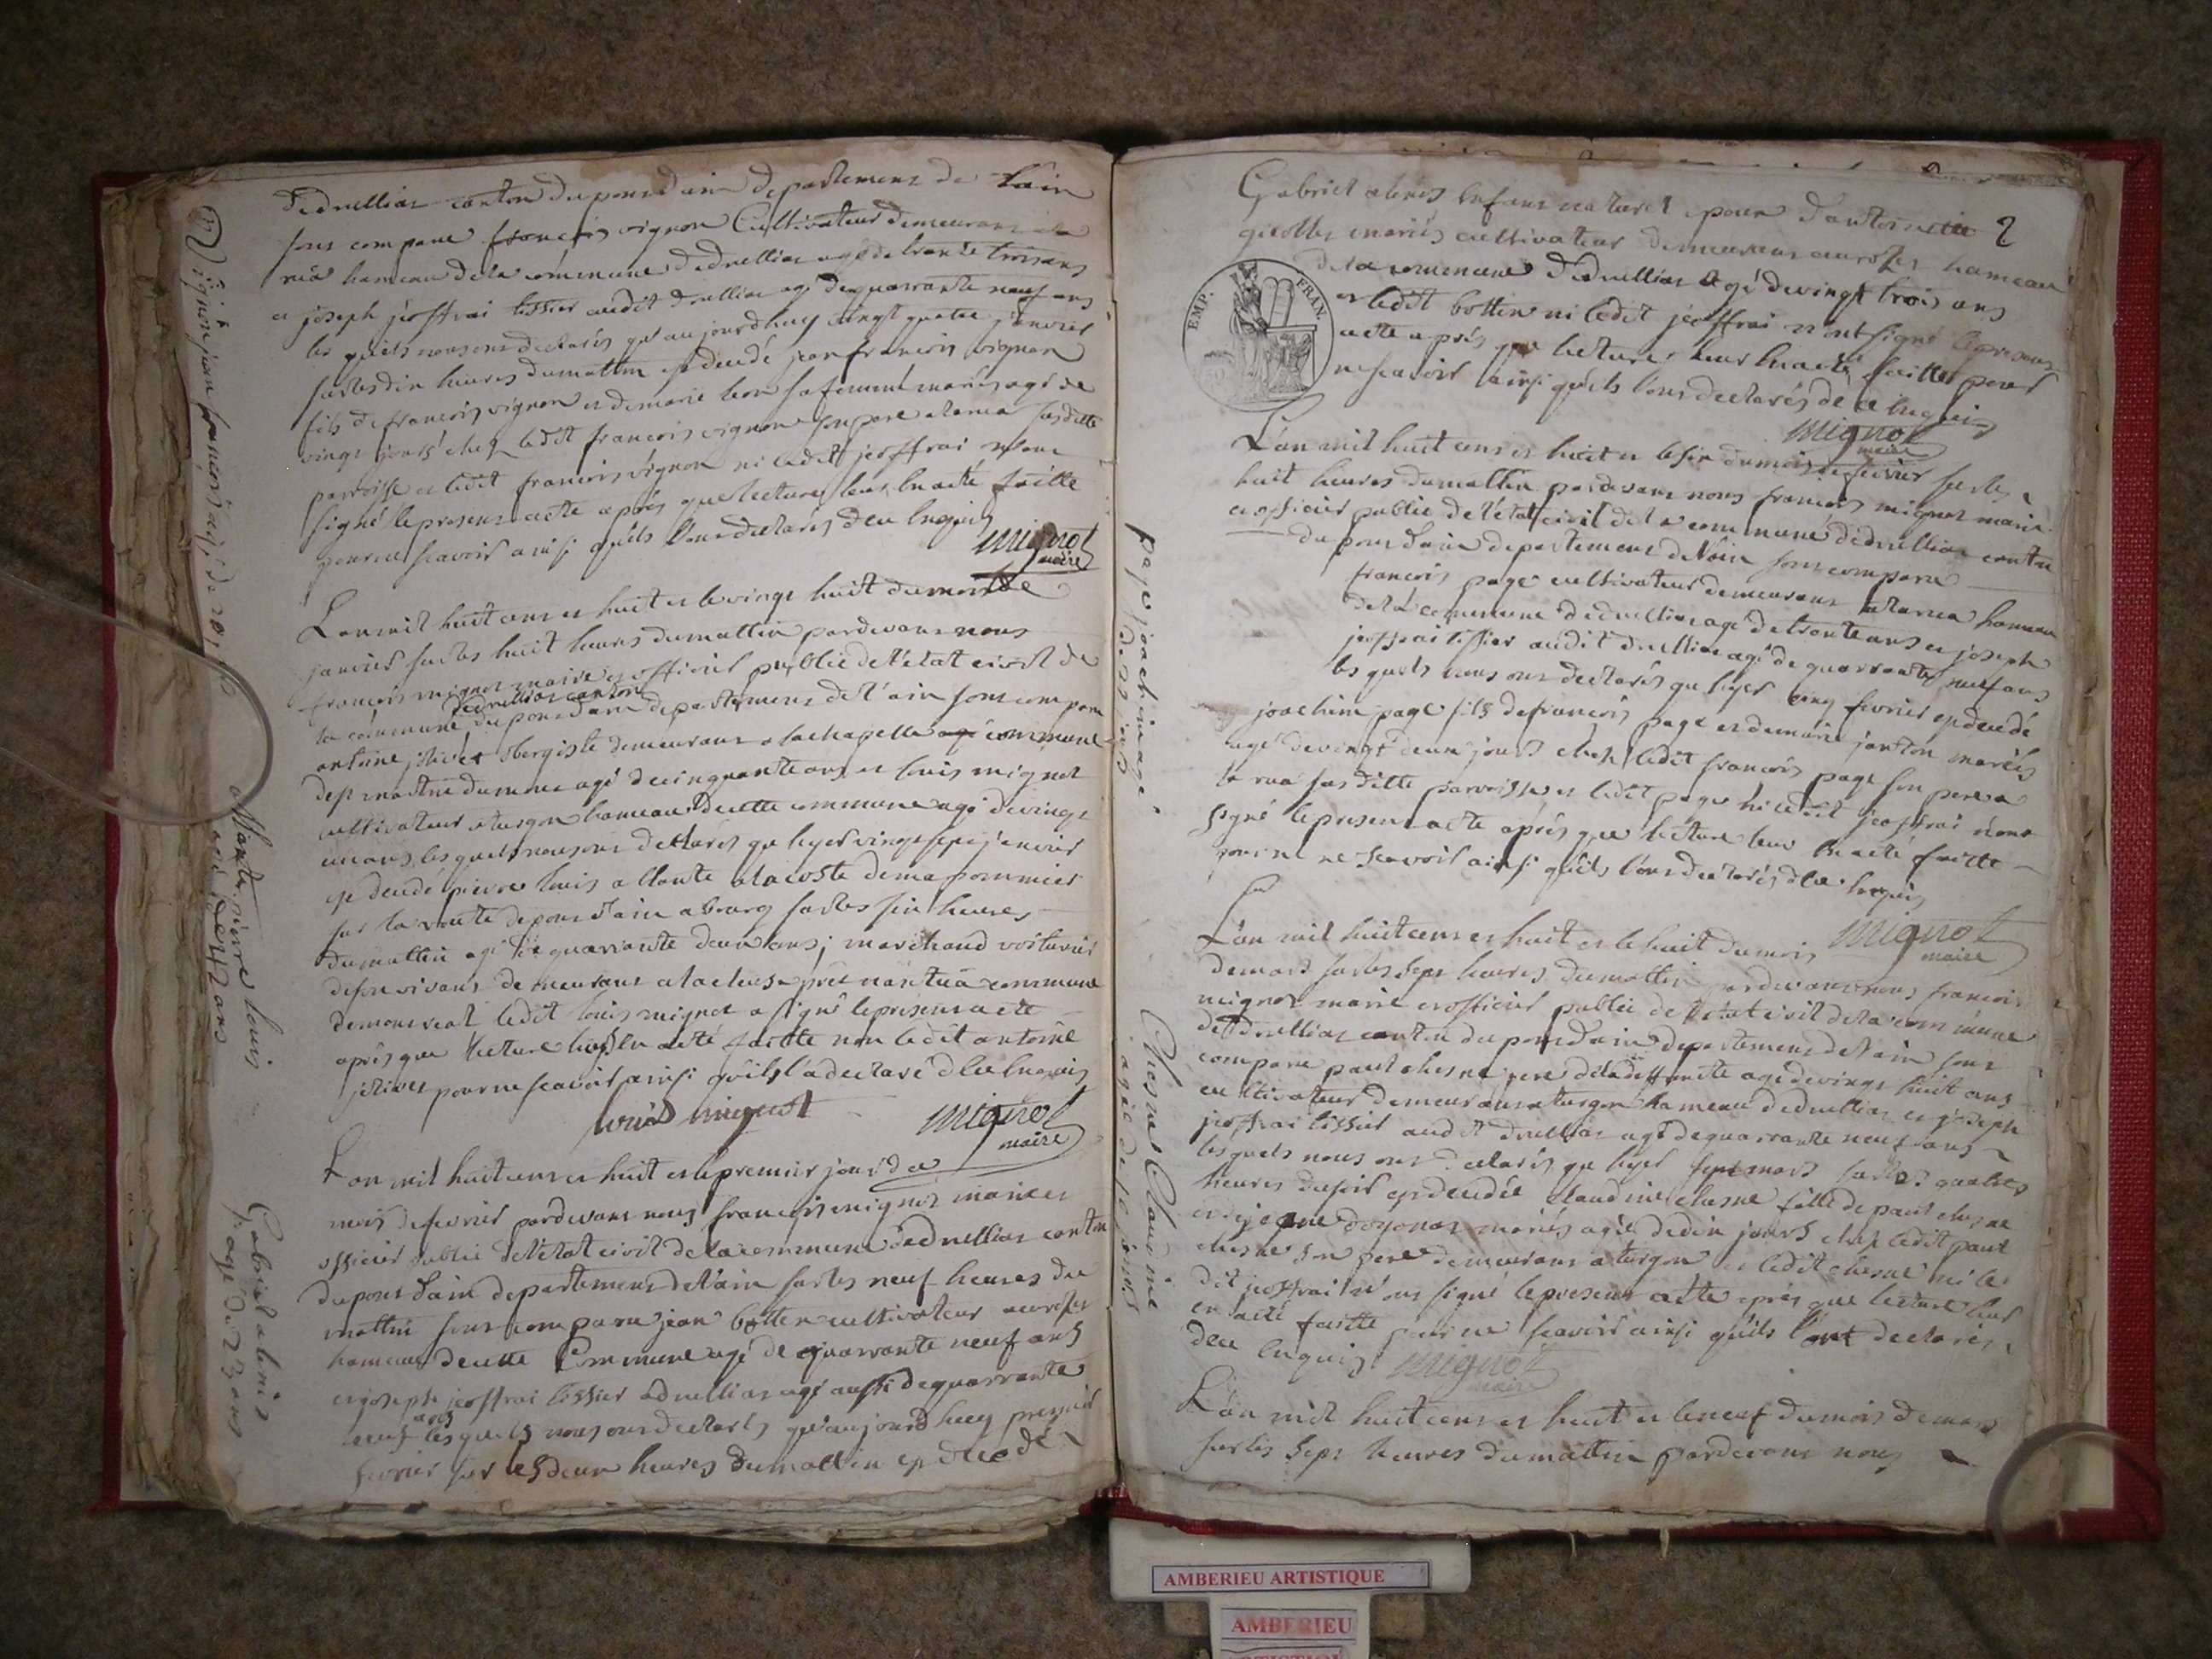 dedruillias canton du pont dain departement de lain
sont comparu francois vignon Cultivateur demeurant a la
rua hameau de la commune dedruillias agé de trante trois ans
et joseph jeoffrai tissier audit druillias agé de quarrante neuf ans
les quels nous ont declarés qu'aujourdhuy vingt quatre janvier
sur les dix heures du mattin est decedé jean francois vignon
fils de francois vignon et de marie bon sa femme mariés agé de
vingt jours chez ledit francois vignon son pere a larua susditte
parroisse et ledit francois vignon ni ledit jeoffrai n'ont
signé le present acte aprés que lecture leur en a eté faitte
pour ne scavoir ainsi qu'ils l'ont declarés de ce enquis
mignot
maire
L'an mil huit cent et huit et le vingt huit du mois de
janvier sur les huit heures du mattin pardevant nous
francois mignot maire et officier public de l'état civil de
dedruillias canton
la commune du pont dain departement de l'ain sont comparu
antoine obergiste demeurant a la chapelle agé commune
de st martin du mont agé de cinquante ans et louis mignot
cultivateur a turgon hameau de cette commune agé de vingt
un ans, les quels nous ont declarés qu'hyer vingt sept janvier
est decedé pierre louis allante a la coste de ma pommier
sur la route de pont d'ain a bourg sur les six heures
du mattin agé de quarrante deux ans, marchand voiturier
de son vivant demeurant a la cluse pres nantua commune
de montreal ledit louis mignot a signé le present acte
aprés que lecture leur en a eté faitte non ledit antoine
pour ne scavoir ainsi qu'il l'a declaré de ce enquis
louis mignot
mignot
maire
L'an mil huit cent et huit et le premier jour de
mois de fevrier pardevant nous francois mignot maire et
officier public de l'état civil de la commune dedruillias canton
du pont dain departement de l'ain sur les neuf heures du
mattin sont comparu jean bottex cultivateur aux roses
hameau de cette Commune agé de quarrante neuf ans
et joseph jeoffrai tissier a druillias agé aussi de quarrante
neuf ans les quels nous ont declarés qu'aujourd huy premier
fevrier sur les deux heures du mattin est decedé
vignon jean francois agé de 20 j.
allante pierre louis
agé de 42 ans
Gabriel alexis
agé de 23 ans
Gabriel alexis enfant naturel epoux d'antoinette 2
mariés cultivateur demeurant aux roses hameau
de la commune dedruillias agé de vingt trois ans
et ledit bottex ni ledit jeoffrai n'ont signé le present
acte aprés que lecture leur en a eté faitte pour
ne scavoir ainsi qu'ils l'ont declarés de ce enquis
EMP. FRAN.
mignot
maire
L'an mil huit cent et huit et le six du mois de fevrier sur les
huit heures du mattin pardevant nous francois mignot maire
et officier public de l'état civil de la commune dedruillias canton
du pont dain departement de l'ain sont comparu
francois page cultivateur demeurant a larua hameau
de la commune dedruillias agé de trante ans et joseph
jeoffrai tissier audit druillias agé de quarrante neuf ans
les quels nous ont declarés qu'hyer cinq fevrier est decedé
joachim page fils de francois page et de marie janton mariés
agé de vingt deux jours chez ledit francois page son pere a
la rua susditte parroisse et ledit page ni ledit jeoffrai n'ont
signé le present acte aprés que lecture leur en a eté faitte
pour ne ne scavoir ainsi qu'ils l'ont declarés de ce enquis
mignot
maire
L'an mil huit cent et huit et le huit du mois
de mars sur les sept heures du mattin pardevant nous francois
mignot maire et officier public de l'état civil de la commune
de druillias canton du pont dain departement de l'ain sont
comparu paul chesne pere de la deffunte agé de vingt huit ans
cultivateur demeurant a turgon hameau dedruillias et joseph
jeoffrai tissier audit druillias agé de quarrante neuf ans
les quels nous ont declarés qu'hyer sept mars sur les quatres
heures du soir est decedée claudine chesne fille de paul chesne
et de jeanne doyonas mariés agée de dix jours chez ledit paul
chesne son pere demeurant a turgon et ledit chesne ni le
dit jeoffrai n'ont signé le present acte aprés que lecture leur
en a eté faitte pour ne scavoir ainsi qu'ils l'ont declarés
de ce enquis mignot
maire
L'an mil huit cent et huit et le neuf du mois de mars
sur les sept heures du mattin pardevant nous
page joachim agé
de 22 jours
Chesne Claudine
agée de 10 jours
AMBERIEU ARTISTIQUE
AMBERIEU